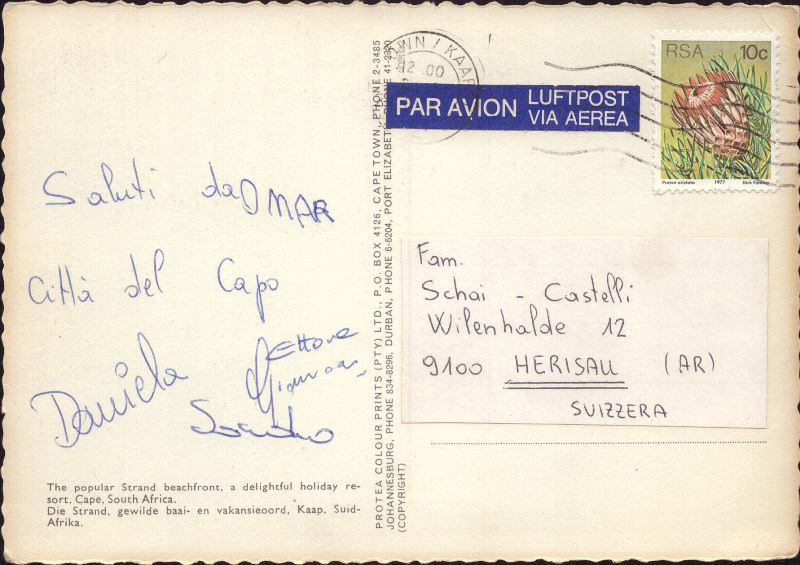 Saluti da OMAR
Città del Capo
Daniela
Ettore
Sandro
The popular Strand beachfront, a delightful holiday re-
sort. Cape, South Africa.
Die Strand, gewilde baai- en vakansieoord, Kaap. Suid-
Afrika.
PROTEA COLOUR PRINTS (PTY) LTD., P.O. BOX 4126, CAPE TOWN, PHONE 2-3485
JOHANNESBURG, PHONE 834-8296, DURBAN, PHONE 6-6204, PORT ELIZABETH, PHONE 41-2320
(COPYRIGHT)
WN / KAAP
12.00
PAR AVION
LUFTPOST
VIA AEREA
RSA 10c
Protea aristata 1977 Dick Findlay
Fam.
Schai - Castelli
Wilenhalde 12
9100 HERISAU (AR)
SUIZZERA